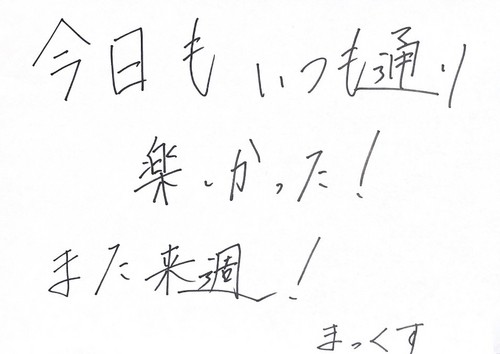 今日も いつも通り
楽しかった!
また来週!
まっくす